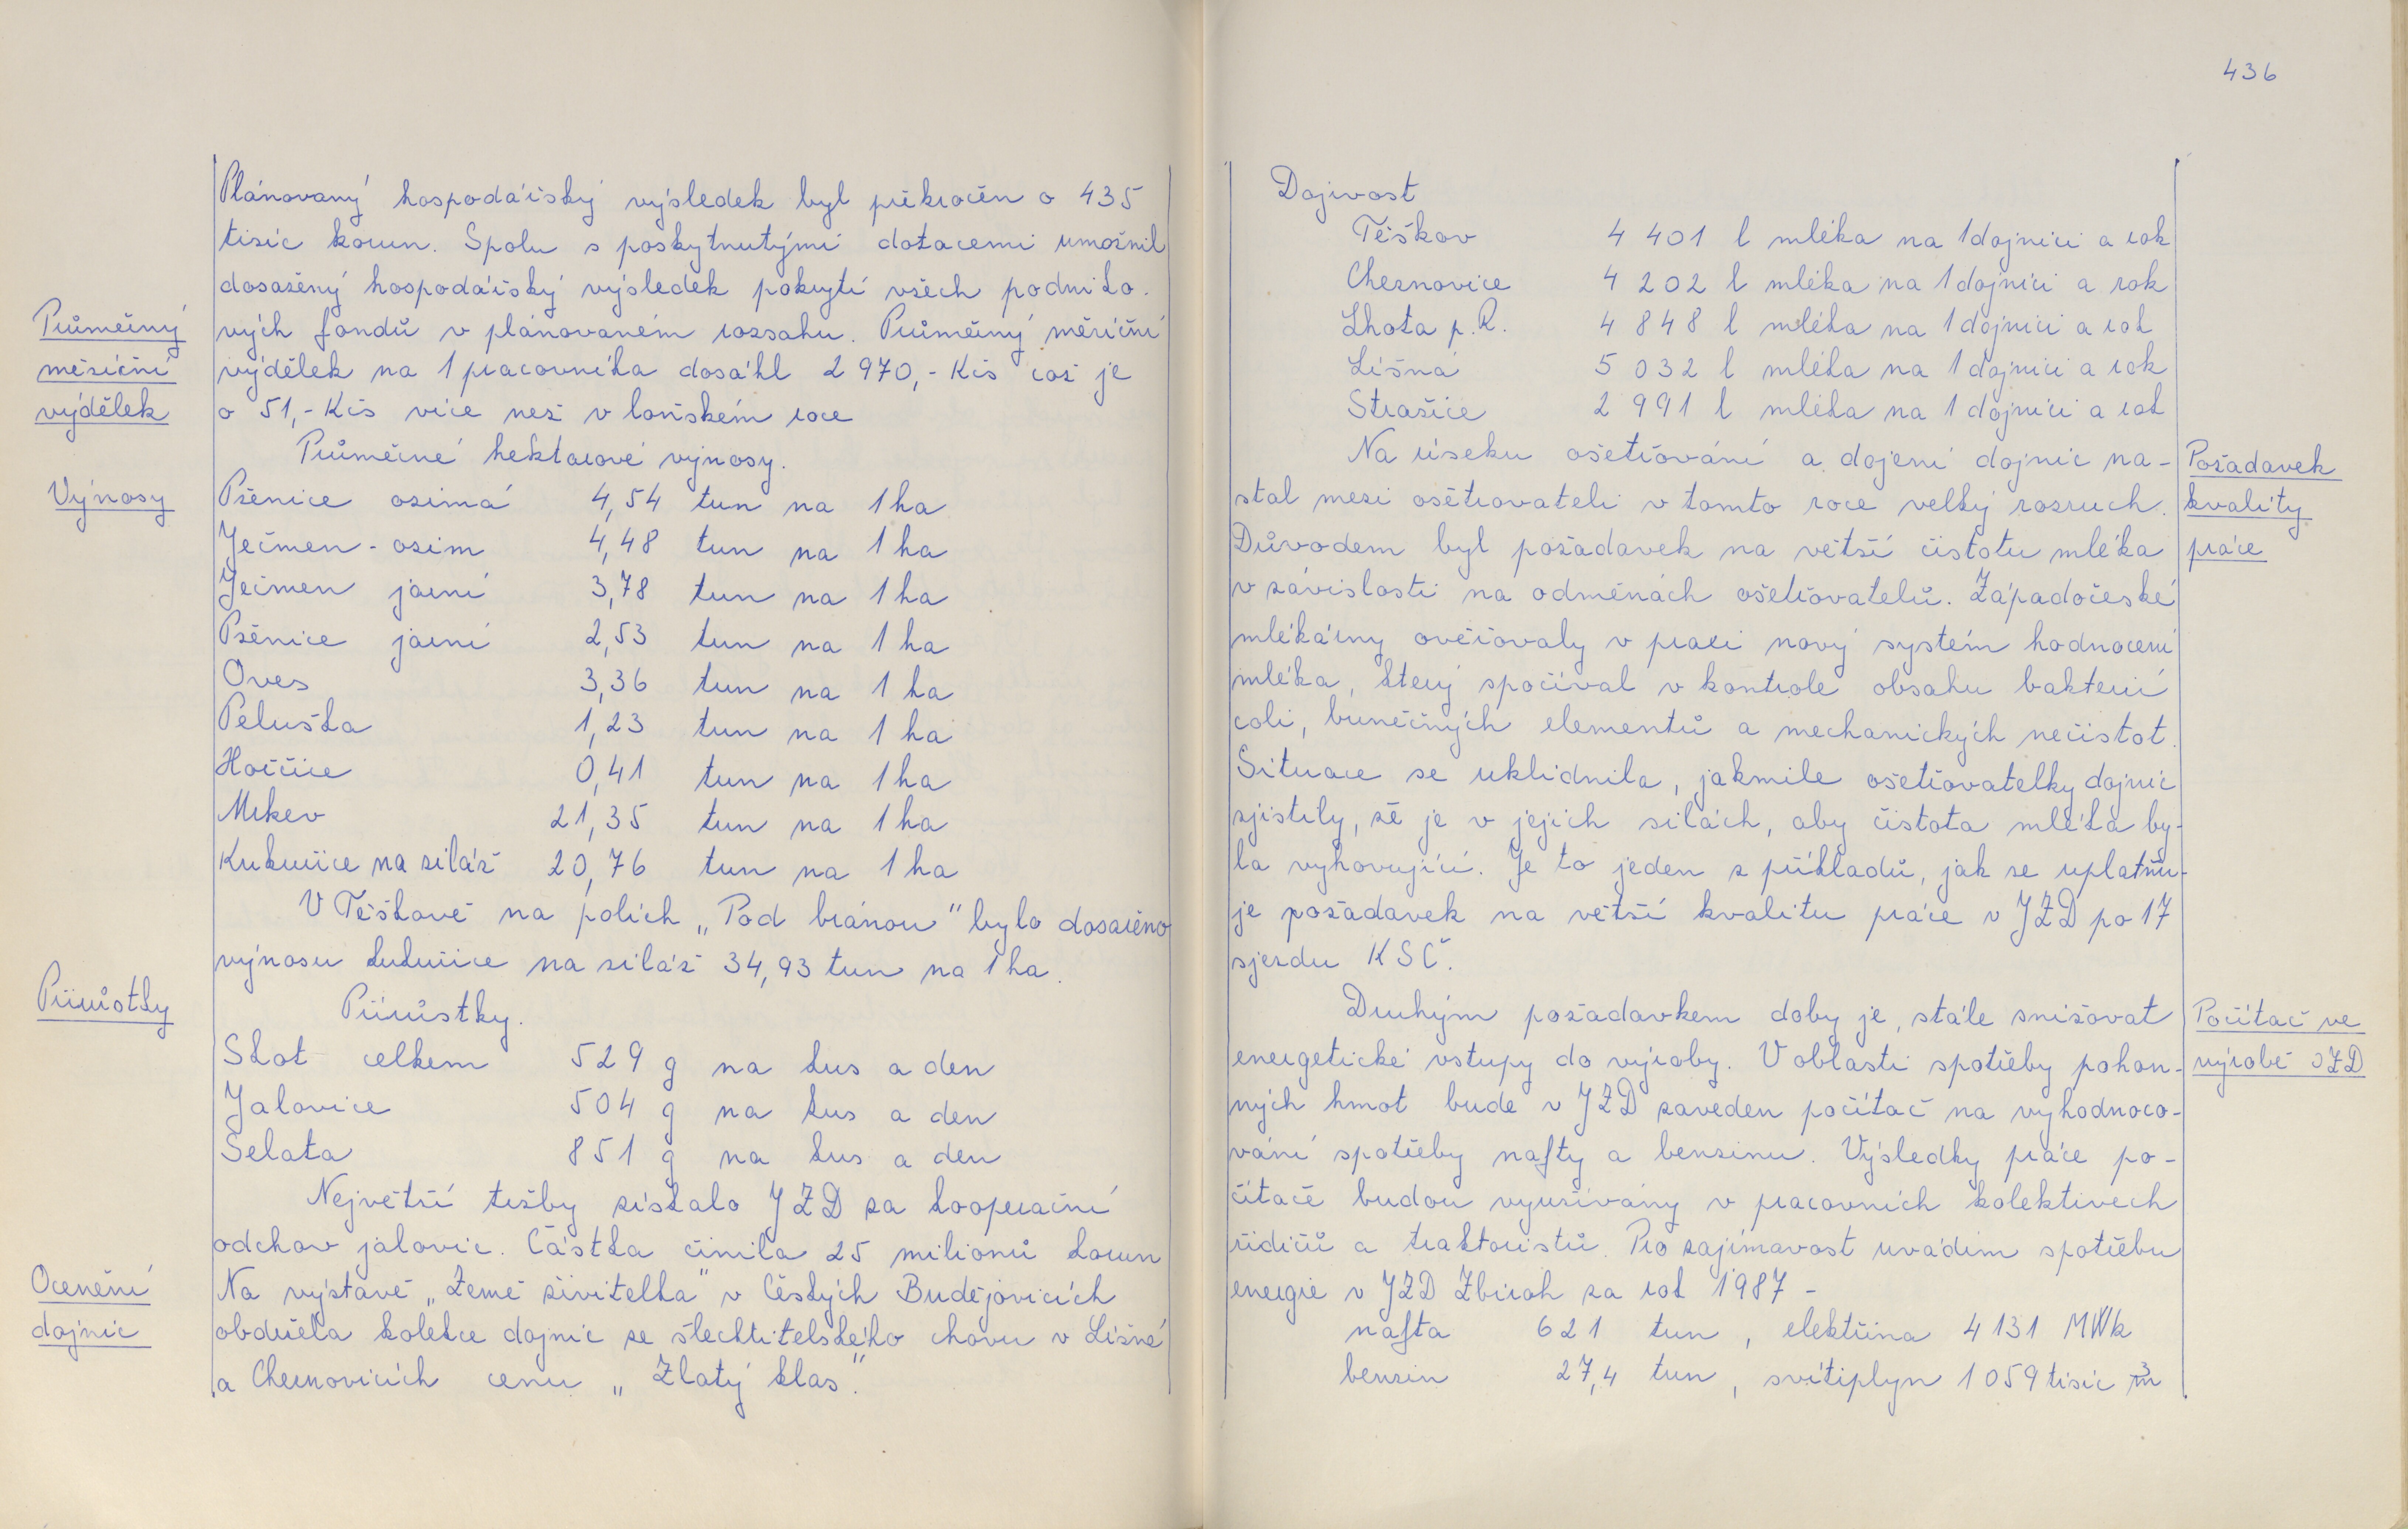 Plánovaný hospodářský výsledek byl překročen o 435
tisíc korun. Spolu s poskytnutými dotacemi umožnil
dosažený hospodářský výsledek pokrytí všech podniko-
Průměrný
vých fondů v plánovaném rozsahu. Průměrný měsíční
měsíční
výdělek na 1 pracovníka dosáhl 2 970,- Kčs což je
výdělek
o 51,- Kčs více než v loňském roce
Průměrné hektarové výnosy.
Výnosy
Pšenice ozimá 4,54 tun na 1 ha
Ječmen - ozim 4,48 tun na 1 ha
Ječmen jarní 3,78 tun na 1 ha
Pšenice jarní 2,53 tun na 1 ha
Oves 3,36 tun na 1 ha
Peluška 1,23 tun na 1 ha
Hořčice 0,41 tun na 1 ha
Mrkev 21,35 tun na 1 ha
Kukuřice na siláž 20,76 tun na 1 ha
V Těškově na polích „Pod bránou" bylo dosaženo
výnosu kukuřice na siláž 34,93 tun na 1 ha.
Přírůstky
Přírůstky.
Skot celkem 529 g na kus a den
Jalovice 504 g na kus a den
Selata 851 g na kus a den
Největší tržby získalo JZD za kooperační
odchov jalovic. Částka činila 25 milionů korun
Ocenění
Na výstavě „Země živitelka" v Českých Budějovicích
dojnic
obdržela kolekce dojnic ze šlechtitelského chovu v Líšné
a Chernovicích cenu „Zlatý klas".
436
Dojivost
Těškov 4 401 l mléka na 1 dojnici a rok
Cheznovice 4 202 l mléka na 1 dojnici a rok
Lhota p. R. 4 848 l mléka na 1 dojnici a rok
Líšná 5 032 l mléka na 1 dojnici a rok
Strašice 2 991 l mléka na 1 dojnici a rok
Na úseku ošetřování a dojení dojnic na-
Požadavek
stal mezi ošetřovateli v tomto roce velký rozruch.
kvality
Důvodem byl požadavek na větší čistotu mléka
práce
v závislosti na odměnách ošetřovatelů. Západočeské
mlékárny ověřovaly v praxi nový systém hodnocení
mléka, který spočíval v kontrole obsahu bakterií
coli, buněčných elementů a mechanických nečistot.
Situace se uklidnila, jakmile ošetřovatelky dojnic
zjistily, že je v jejich silách, aby čistota mléka by-
la vyhovující. Je to jeden z příkladů, jak se uplatňu-
je požadavek na větší kvalitu práce v JZD po 17
sjezdu KSČ.
Druhým požadavkem doby je, stále snižovat
Počítač ve
energetické vstupy do výroby. V oblasti spotřeby pohon-
výrobě JZD
ných hmot bude v JZD zaveden počítač na vyhodnoco-
vání spotřeby nafty a benzinu. Výsledky práce po-
čítače budou využívány v pracovních kolektivech
řidičů a traktoristů. Pro zajímavost uvádím spotřebu
energie v JZD Zbiroh za rok 1987 -
nafta 621 tun, elektřina 4131 MWh
benzin 27,4 tun, svítiplyn 1 059 tisíc m³